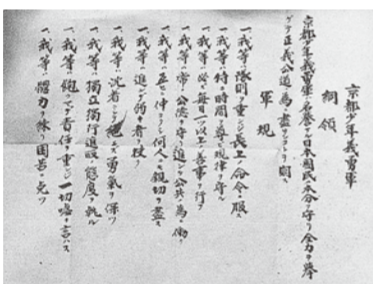 京都少年義勇軍
綱領
京都少年義勇軍ノ名誉ニカケ日本国民本分ヲ守リ全力ヲ挙
ゲテ正義公道ノ為ニ尽サンコトヲ期ス
軍規
一、我等ハ隊則ヲ重ンジ長上ノ命令ニ服ス
一、我等ハ特ニ時間ヲ尊ビ規律ヲ守ル
一、我等ハ必ズ毎日一ツ以上ノ善事ヲ行フ
一、我等ハ常ニ公徳ヲ守リ進ンデ公共ノ為ニ働ク
一、我等ハ互ニ仲ヨクシ何人ニモ親切ヲ尽ス
一、我等ハ進ンデ弱キ者ヲ扶ク
一、我等ハ沈着ニシテ絶エズ勇気ヲ保ツ
一、我等ハ独立独行進取ノ態度ヲ執ル
一、我等ハ飽クマデ責任ヲ重ンジ一切嘘ヲ言ハズ
一、我等ハ體力ヲ練リ困苦ニ克ツ